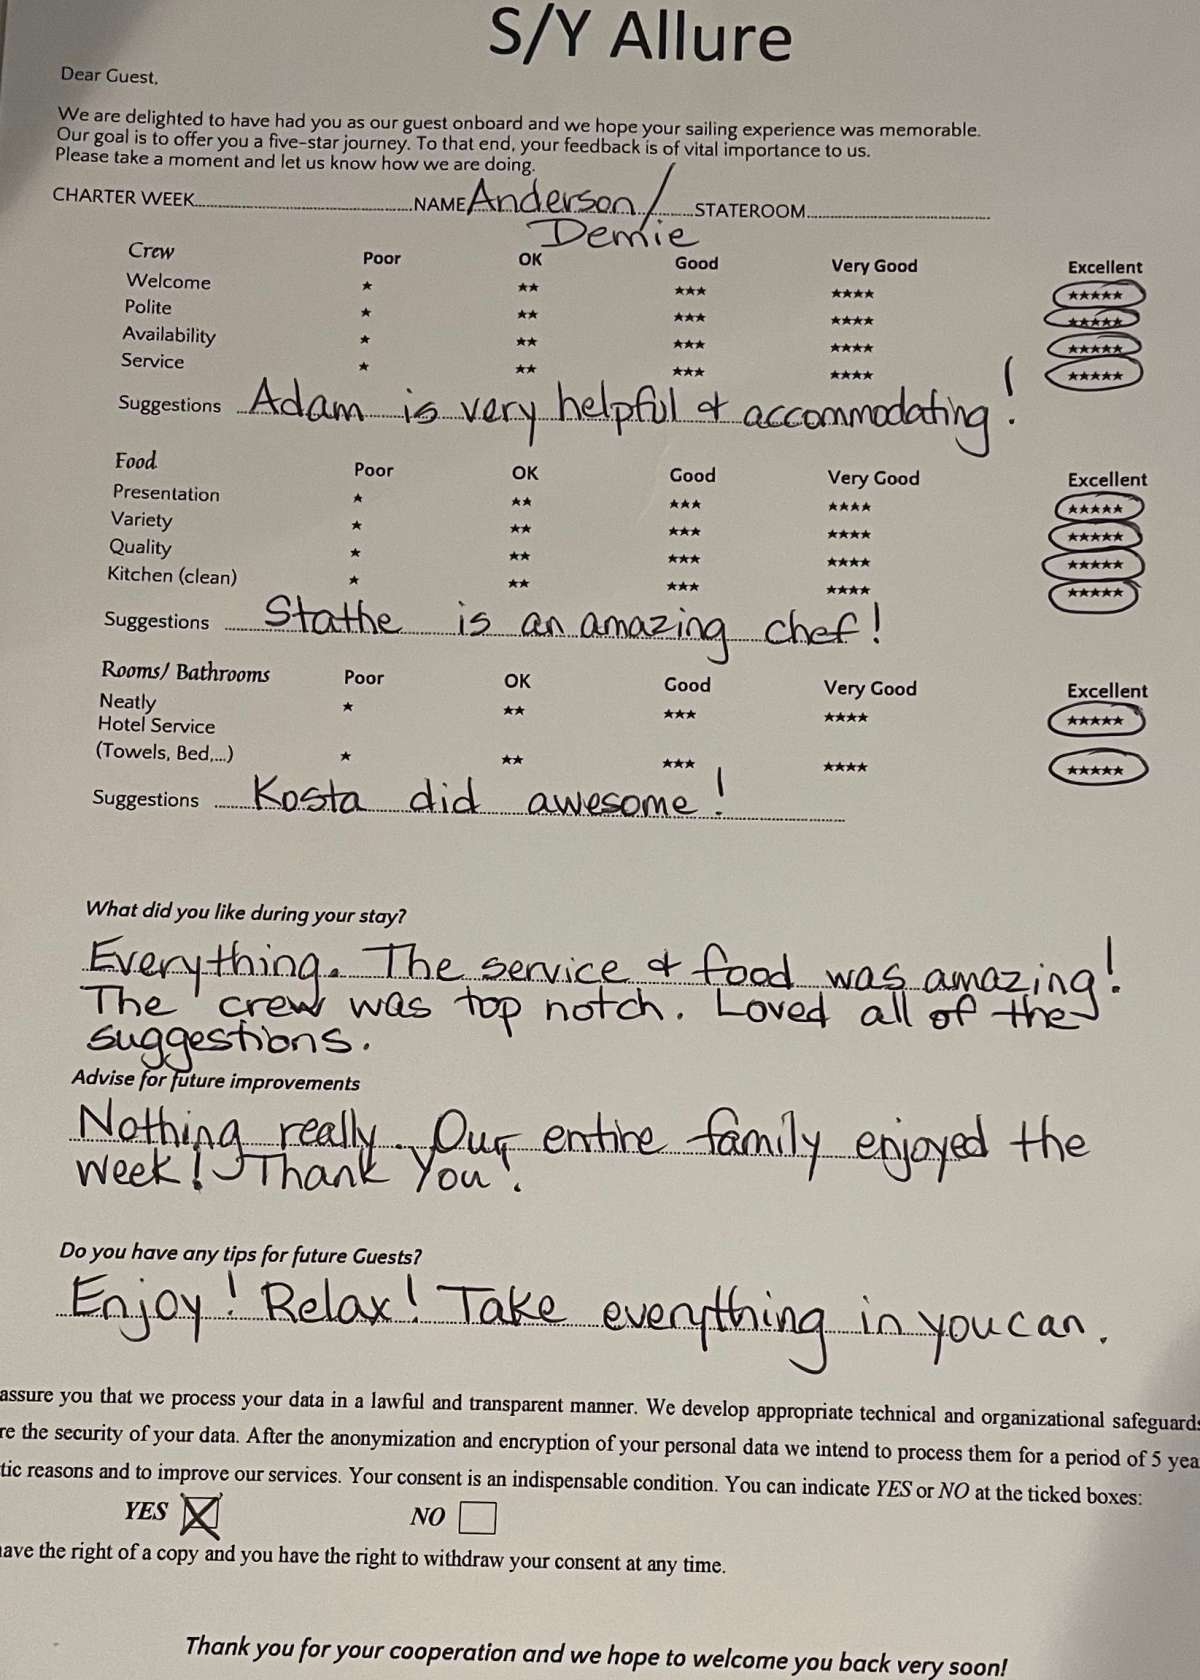 S/Y Allure
Dear Guest,
We are delighted to have had you as our guest onboard and we hope your sailing experience was memorable.
Our goal is to offer you a five-star journey. To that end, your feedback is of vital importance to us.
Please take a moment and let us know how we are doing.
CHARTER WEEK NAME Anderson/ STATEROOM
Demie
Crew Poor OK Good Very Good Excellent
Welcome ★ ★★ ★★★ ★★★★ ★★★★★
Polite ★ ★★ ★★★ ★★★★ ★★★★★
Availability ★ ★★ ★★★ ★★★★ ★★★★★
Service ★ ★★ ★★★ ★★★★ ★★★★★
Suggestions Adam is very helpful & accommodating!
Food Poor OK Good Very Good Excellent
Presentation ★ ★★ ★★★ ★★★★ ★★★★★
Variety ★ ★★ ★★★ ★★★★ ★★★★★
Quality ★ ★★ ★★★ ★★★★ ★★★★★
Kitchen (clean) ★ ★★ ★★★ ★★★★ ★★★★★
Suggestions Stathe is an amazing chef!
Rooms/ Bathrooms Poor OK Good Very Good Excellent
Neatly ★ ★★ ★★★ ★★★★ ★★★★★
Hotel Service
(Towels, Bed,...) ★ ★★ ★★★ ★★★★ ★★★★★
Suggestions Kosta did awesome!
What did you like during your stay?
Everything. The service & food was amazing!
The crew was top notch. Loved all of the
suggestions.
Advise for future improvements
Nothing really. Our entire family enjoyed the
week! Thank You!
Do you have any tips for future Guests?
Enjoy! Relax! Take everything in you can.
assure you that we process your data in a lawful and transparent manner. We develop appropriate technical and organizational safeguards
re the security of your data. After the anonymization and encryption of your personal data we intend to process them for a period of 5 yea
tic reasons and to improve our services. Your consent is an indispensable condition. You can indicate YES or NO at the ticked boxes:
YES NO
have the right of a copy and you have the right to withdraw your consent at any time.
Thank you for your cooperation and we hope to welcome you back very soon!